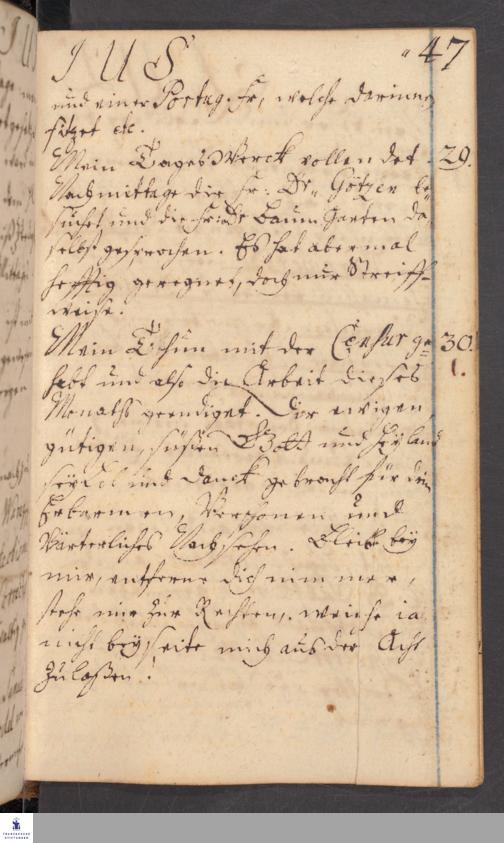 IUS 47
und einer Portug. Fr, welche darinne
sitzet etc.
Mein TagesWerck vollendet. 29.
Nachmittage die Fr: Dr. Götzen be-
suchet und die Fr: Dr Baumgarten da-
selbst gesprochen. Es hat abermal
hefftig geregnet, doch nur Streiff-
weise.
Mein Thun mit der Censur ge- 30.
habt und also die Arbeit dieses 1.
Monaths geendiget. Dir ewigen,
gütigen, süßen Gott und Heyland
sey Lob und Danck gebracht für dein
Erbarmen, Verschonen und
Väterliches Nachsehen. Bleibe bey
mir, entferne dich nimmer,
stehe mir zur Rechten, weiche ia
nicht beyseite mich aus der Acht
zulaßen!
FRANCKESCHE
STIFTUNGEN